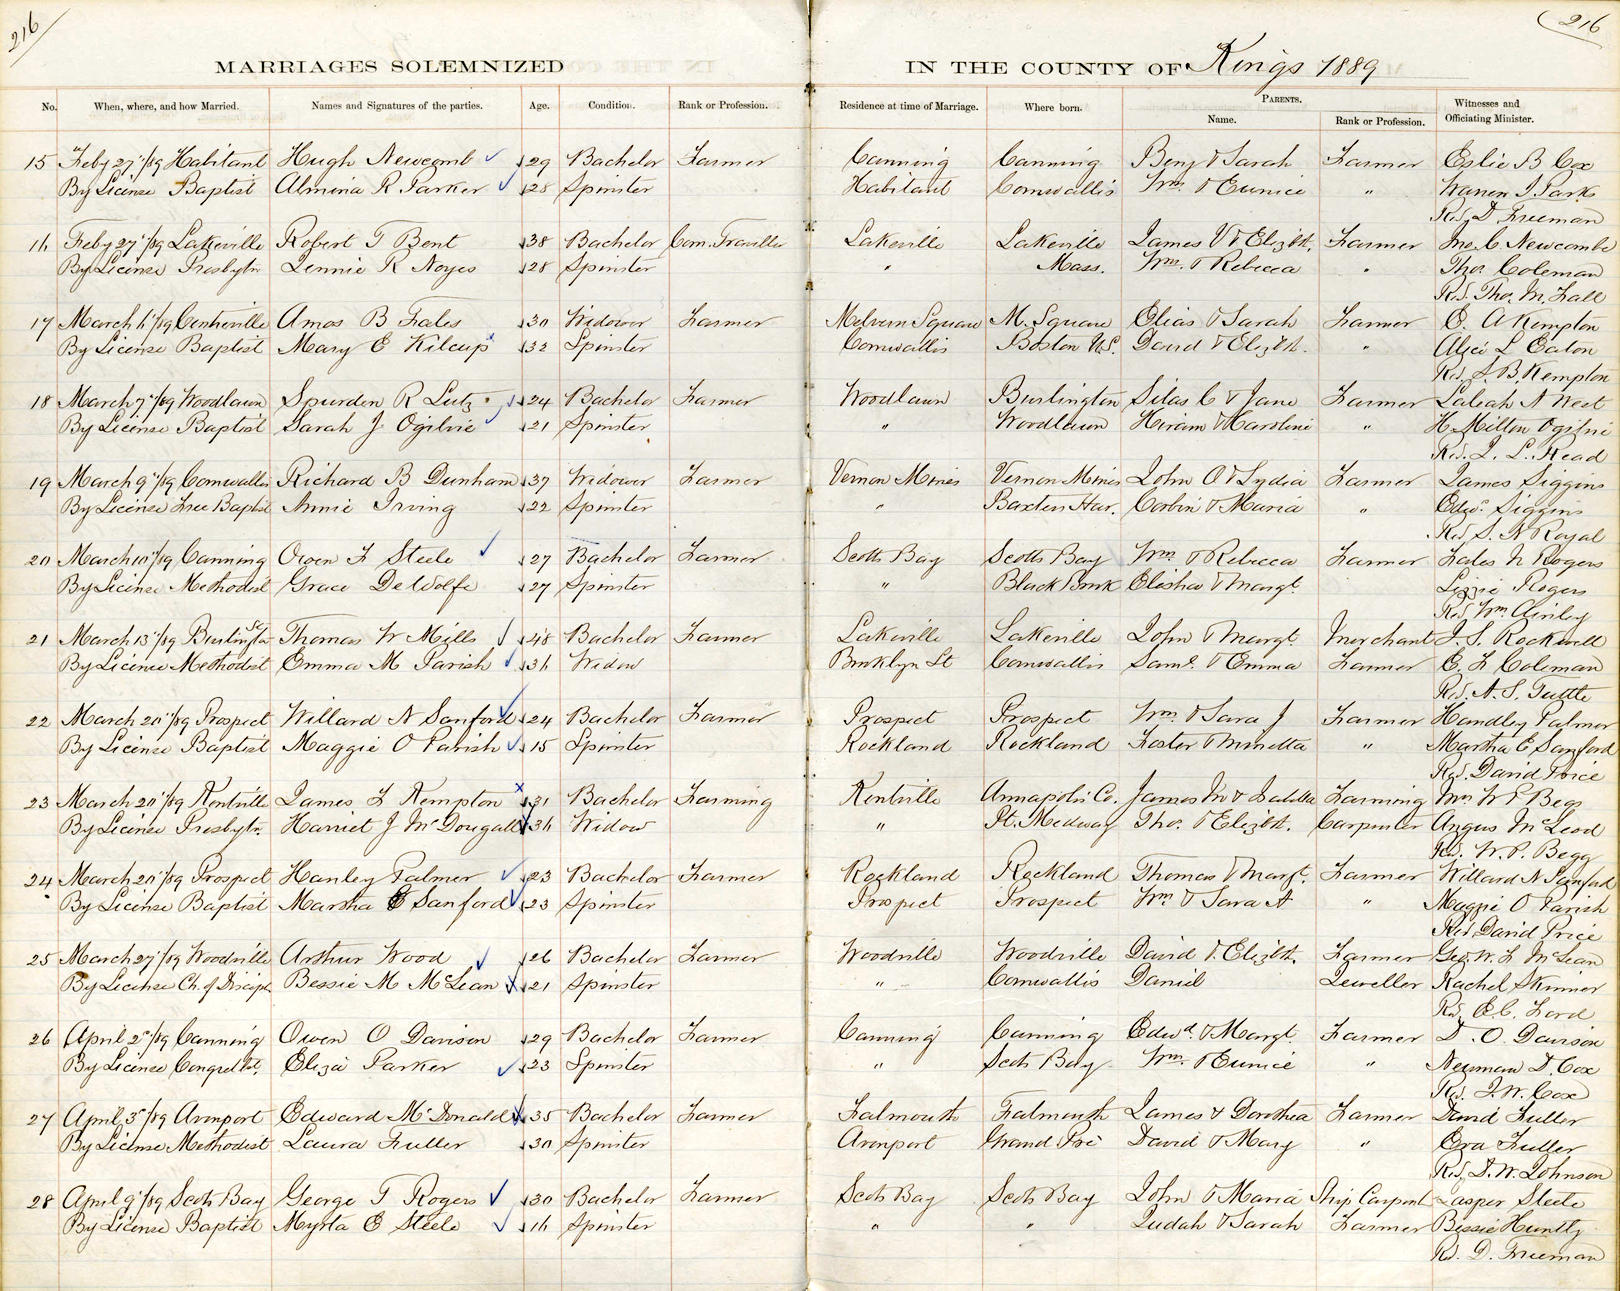 216
216
MARRIAGES SOLEMNIZED IN THE COUNTY OF Kings 1889
No. When, where, and how Married. Names and Signatures of the parties. Age. Condition. Rank or Profession. Residence at time of Marriage. Where born. PARENTS. Name. Rank or Profession. Witnesses and Officiating Minister.
15 Feby 27th/89 Habitant Hugh Newcomb 29 Bachelor Farmer Canning Canning Benj & Sarah Farmer Eslie B Cox
By License Baptist Almina R Parker 28 Spinster Habitant Cornwallis Wm & Eunice " Warren I Parks
Rd. D. Freeman
16 Feby 27th/89 Lakeville Robert T Bent 38 Bachelor Com. Traveller Lakeville Lakeville James V & Elizbth. Farmer Jno. C. Newcombe
By License Presbytn Jennie R Noyes 28 Spinster " Mass. Wm. & Rebecca " Thos Coleman
Rd. Thos. M. Fall
17 March 6th/89 Centreville Amos B Fales 30 Widower Farmer Melvern Square M. Square Elias & Sarah Farmer E. A Kempton
By License Baptist Mary E Kilcup 32 Spinster Cornwallis Boston U.S. David & Elizbth. " Alice L Eaton
Rd. S. B. Kempton
18 March 7th/89 Woodlawn Spurden R Lutz 24 Bachelor Farmer Woodlawn Burlington Silas C & Jane Farmer Laleah A West
By License Baptist Sarah J Ogilvie 21 Spinster " Woodlawn Hiram & Caroline " H Milton Ogilvie
Rd. J. L. Read
19 March 9th/89 Cornwallis Richard B Dunham 37 Widower Farmer Vernon Mines Vernon Mines John O & Lydia Farmer James Siggins
By License Free Baptist Annie Irving 22 Spinster " Baxters Har. Corbin & Maria " Edwd. Siggins
Rd S. N Royal
20 March 10th/89 Canning Owen F Steele 27 Bachelor Farmer Scotts Bay Scotts Bay Wm & Rebecca Farmer Fales N Rogers
By License Methodist Grace DeWolfe 27 Spinster " Black Rock Elisha & Margt. Lizzie Rogers
Rd Wm Ainley
21 March 13th/89 Burlington Thomas W Mills 48 Bachelor Farmer Lakeville Lakeville John & Margt. Merchant J. S. Rockwell
By License Methodist Emma M Parish 36 Widow Brooklyn St Cornwallis Saml. & Emma Farmer E. F Coleman
Rd. A. S. Tuttle
22 March 20th/89 Prospect Willard N Sanford 24 Bachelor Farmer Prospect Prospect Wm & Sara J Farmer Handley Palmer
By License Baptist Maggie O Parish 15 Spinster Rockland Rockland Foster & Minetta " Martha E Sanford
Rd. David Price
23 March 20th/89 Kentville James F Kempton 31 Bachelor Farming Kentville Annapolis Co. James M & Zabilla Farming Mrs W P Begg
By License Presbytn. Harriet J McDougall 36 Widow " Pt. Medway Thos. & Elizbth. Carpenter Angus McLeod
Rd. W. P. Begg
24 March 20th/89 Prospect Hanley Palmer 23 Bachelor Farmer Rockland Rockland Thomas & Margt. Farmer Willard N Sanford
By License Baptist Martha E Sanford 23 Spinster Prospect Prospect Wm & Sara A " Maggie O Parish
Rd David Price
25 March 27th/89 Woodville Arthur Wood 26 Bachelor Farmer Woodville Woodville David & Elizbth. Farmer Geo. W. F McLean
By License Ch. of Discipl. Bessie M McLean 21 Spinster " Cornwallis Daniel Jeweller Rachel Skinner
Rd. E. C. Ford
26 April 2nd/89 Canning Owen O Davison 29 Bachelor Farmer Canning Canning Edwd & Margt. Farmer D. O. Davison
By License Congretl. Eliza Parker 23 Spinster " Scots Bay Wm. & Eunice " Newman D. Cox
Rd. J. W. Cox
27 April 3rd/89 Avonport Edward McDonald 35 Bachelor Farmer Falmouth Falmouth James & Dorothea Farmer David Fuller
By License Methodist Laura Fuller 30 Spinster Avonport Grand Pré David & Mary " Ezra Fuller
Rd. D. W. Johnson
28 April 9th/89 Scots Bay George T Rogers 30 Bachelor Farmer Scots Bay Scots Bay John & Maria Ship Carpent Jasper Steele
By License Baptist Myrta E Steele 16 Spinster " " Judah & Sarah Farmer Bessie Huntly
Rd. D. Freeman